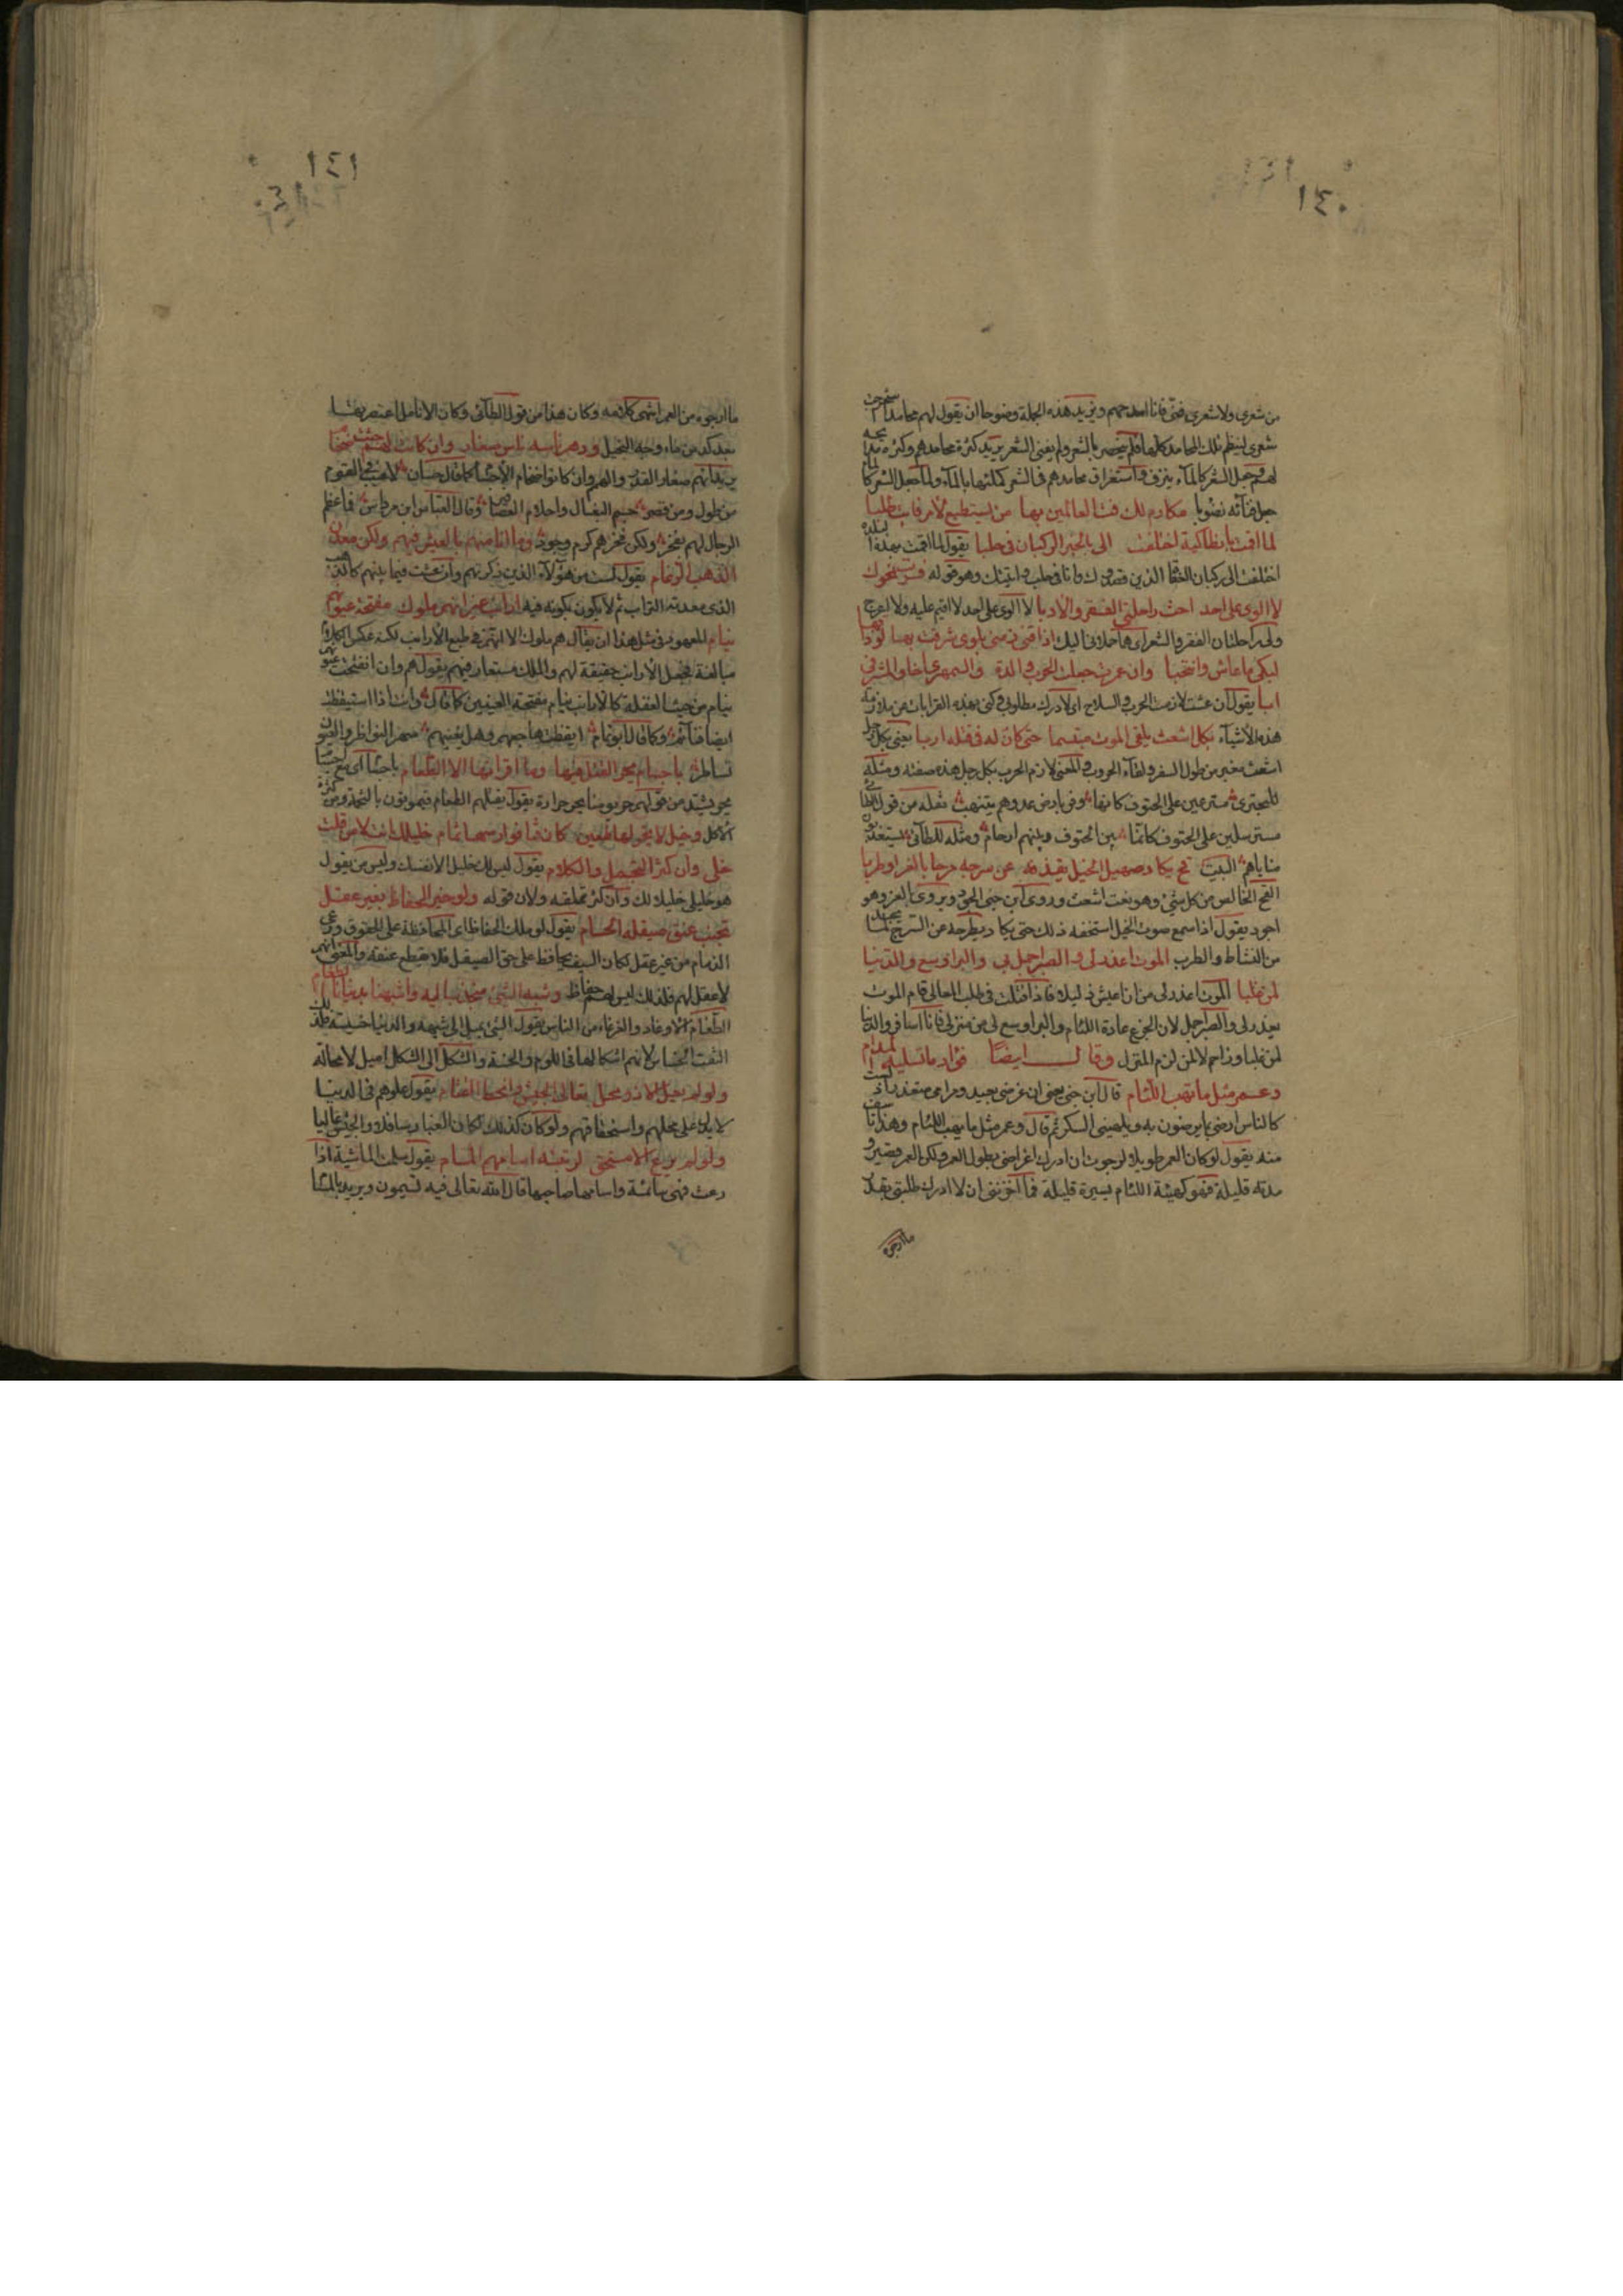 ١٤٠
من شعرى ولا شعرى فنى فانا امدحهم ويريد هذه الجملة وضوحا ان يقول لهم محامد
شعرى لينظم تلك المحامد كلها فلم ينحصر بالشعر ولم يفنى الشعر يريد كثرة محامدهم وكثرة
جعل الشعر كالمآء ينزف واستغراق محامدهم فى الشعر كملئها بالمآء ولما جعل الشعر كا
جعل فنآئه نضوبا مكارم لك فت العالمين بها من يستطيع لامر فايت طلبا
لما اقمت بانطاكية اختلفت الى بالخبر الركبان فى حلبا يقول لما اقمت بهذه
اختلفت الى ركبان الذين قصدوك وانا فى حلب وهو قوله فسرت نحوك
لا الوى على احد احث راحلتى الفقر والادبا لا الوى على احد لا اقيم عليه ولا اعرج
ولى راحلتان الفقر والشعر اذاقنى زمنى بلوى شرقت بها لو ذاقها
لبكى ما عاش وانتحبا وان عمرت جعلت الحرب والدة والسمهرى اخا والمشرفى
ابا يقول ان عشت لازمت الحرب والسلاح اى لادرك مطلوبى وكنى بهذه القرابات عن ملازمة
هذه الاشيآء بكل اشعث يلقى الموت مبتسما حتى كان له فى قتله اربا يعنى بكل رجل
اشعث مغبر من طول السفر ولقآء الحروب والمعنى لازم الحرب بكل رجل هذه صفته ومثله
للبحترى متسرعين على الحتوف كانها وفر بارض عدوهم يتنهب نقله من قول الطائى
مسترسلين على الحتوف كانما بين الحتوف وبينهم ارحام ومثله للطآئى يستعذبون
مناياهم البيت قح يكاد صهيل الخيل يقذفه عن سرجه مرحا بالغزو او طربا
القح الخالص من كل شئ وهو نعت اشعث وروى ابن جنى الجرد ويروى بالعز وهو
اجود يقول اذا سمع صوت الخيل استخفه ذلك حتى يكاد يطرحه عن السرج لما
من النشاط والطرب الموت اعذر لى والصبر اجمل بى والبر اوسع والدنيا
لمن غلبا الموت اعذر لى من ان اعيش ذليلا فاذا قتلت فى طلب المعالى قام الموت
بعذرى والصبر اجمل لان الجزع عادة اللئام والبر اوسع لى من منزلى فانا اسافر والدنيا
لمن غلبا وزاحم لا لمن لزم المنزل وقال ايضا فؤاد ما تسليه المدام
وعمر مثل ما تهب اللئام قال ابن جنى يعنى ان غرضى بعيد ومرامى متعذر اذ لست
كالناس ارضى بما يرضون به ويلهينى السكر ثم قال وعمر مثل ما تهب اللئام وهذا
منه يقول لو كان العمر طويلا لرجوت ان ادرك اغراضى بطول العمر ولكن العمر قصير و
مدته قليلة فهو كهبة اللئام يسيرة قليلة فما اخوفنى ان لا ادرك طلبتى بقدر
ما ارجوه
١٤١
ما ارجوه من العمر انتهى كلامه وكان هذا من قول الطآئى وكان الانامل اعتصرتها
بعد كد من مآء وجه البخيل ودهر ناسه ناس صغار وان كانت لهم جثث ضخام
يريد انهم صغار القدر والهمم وان كانوا ضخام الاجسام كما قال حسان لا عيب فى القوم
من طول ومن قصر جسم البغال واحلام العصافير وقال العباس ابن مرداس فما عظم
الرجال لهم بفخر ولكن فخرهم كرم وجود وما انا منهم بالعيش فيهم ولكن معدن
الذهب الرغام يقول لست من هؤلآء الذين ذكرتهم وان عشت فيما بينهم كالذهب
الذى معدنه التراب ثم لا يكون بكونه فيه ارانب غير انهم ملوك مفتحة عيونهم
نيام المعهود فى مثل هذا ان يقال هم ملوك الا انهم فى طبع الارانب لكنه عكس الكلام
مبالغة فجعل الارانب حقيقة لهم والملك مستعار فيهم يقول هم وان انفتحت عيونهم
نيام من حيث الغفلة كالارانب نيام مفتحة العينين كما قال وانت اذا استيقظت
ايضا فنآئم وكما قال ابو تمام ايقظت هاجعهم وهل يغنيهم سهر النواظر والعيون
باجسام يحر القتل فيها وما اقرانها الا الطعام
يحر يشتد من قولهم حر يومنا يحر حرارة يقول يقتلهم الطعام فيموتون بالتخمة ومن كثرة
الاكل وخيل لا يخر لها طعين كان قنا فوارسها ثمام خليلك انت لا من قلت
خلى وان كثر التجمل والكلام يقول ليس لك خليل الا نفسك وليس من يقول
هو خليلى خليلا لك وان كثر تملقه ولان قوله ولو حيز الحفاظ بغير عقل
تجنب عنق صيقله الحسام يقول لو ملك الحفاظ اى المحافظة على الحقوق ورعى
الذمام من غير عقل لكان السيف يحافظ على حق الصيقل فلا يقطع عنقه والمعنى انهم
لا عقل لهم فلذلك ليس لهم حفاظ وشبه الشئ منجذب اليه واشبهنا بدنيانا الطغام
الطغام الاوغاد والغوغاء من الناس يقول الشئ يميل الى شبهه والدنيا خسيسة فلذلك
الفت الخساس لانهم اشكالها فى اللؤم والخسة والشكل الى الشكل اميل لا محالة
ولو لم يعل الا ذو محل تعالى الجيش وانحط القتام يقول علوهم فى الدنيا
لا يدل على محلهم واستحقاقهم ولو كان كذلك لكان الغبار سافلا والجيش عاليا
ولو لم يرع الا مستحق لرتبته اسامهم المسام يقول سامت الماشية اذا
رعت فهى سائمة واسامها صاحبها قال الله تعالى فيه تسيمون ويريد بالمسا